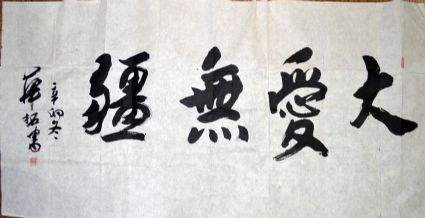 大愛無疆
辛卯冬
華拓書